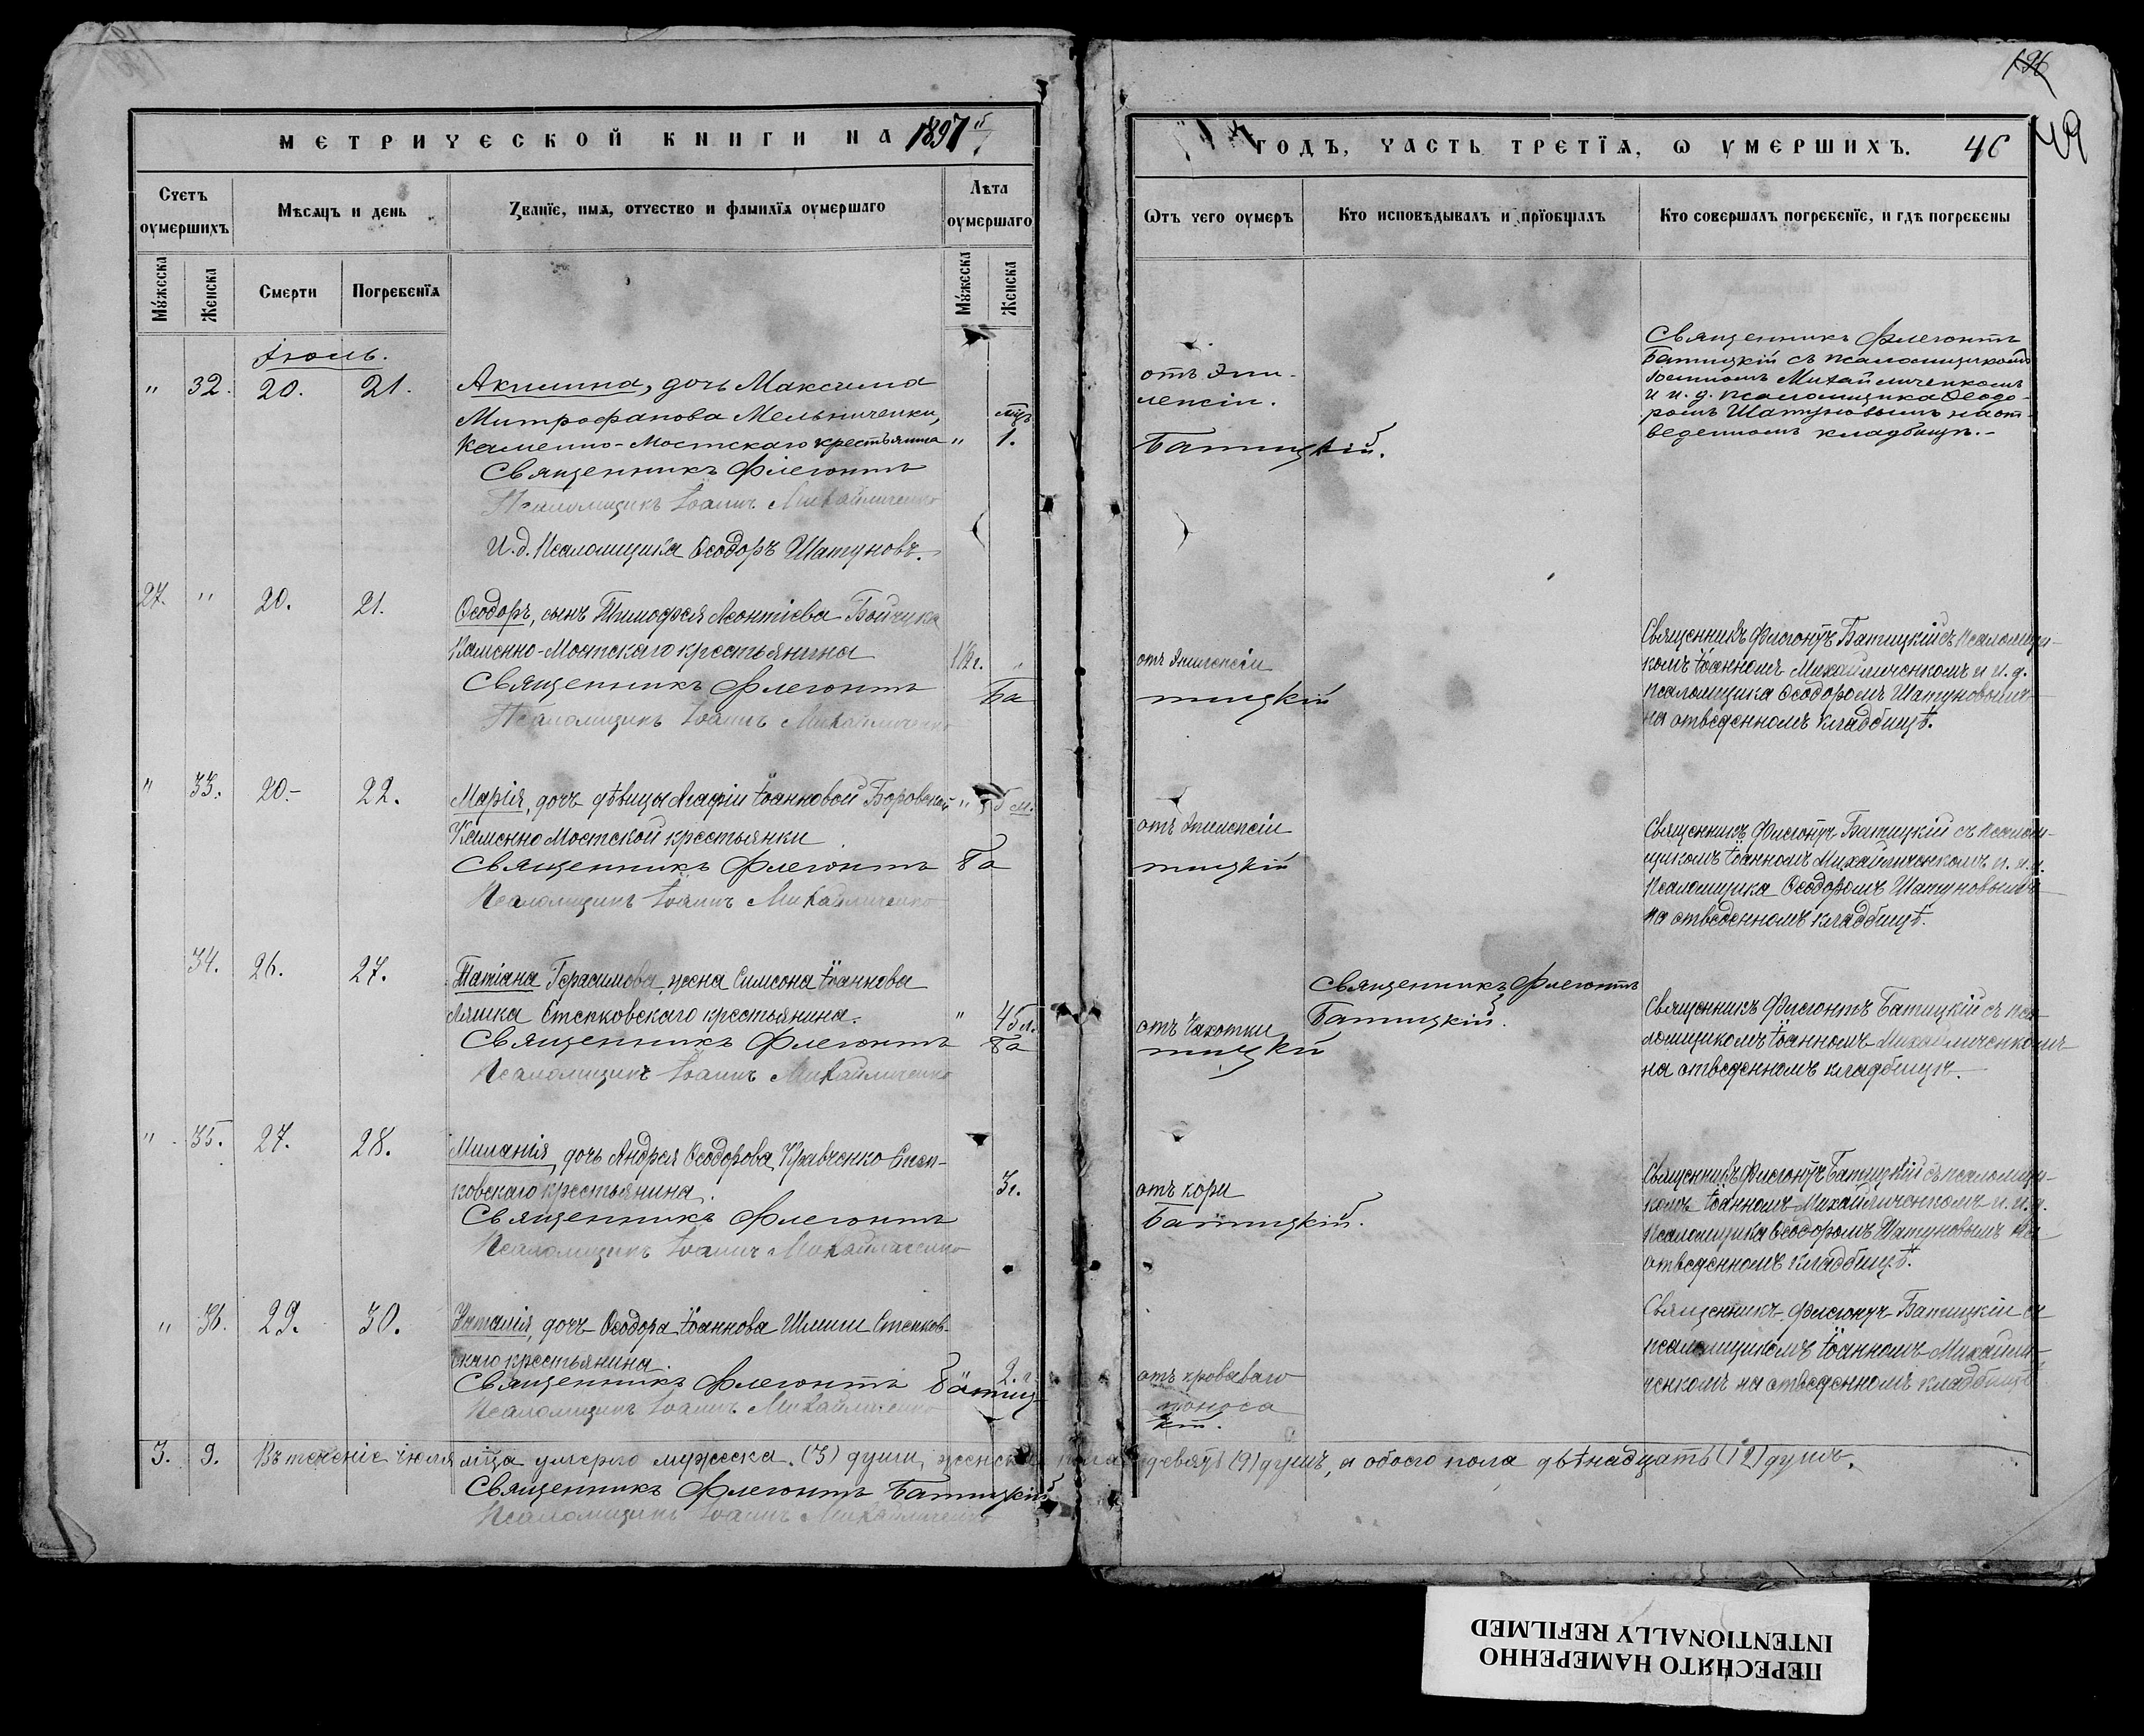 196
49
МЕТРИЧЕСКОЙ КНИГИ НА 1897
ГОДЪ, ЧАСТЬ ТРЕТІѦ, Ѡ УМЕРШИХЪ. 46
Счетъ оумершихъ
Мѣсяцъ и день
Званіе, имѧ, отчество и фамиліѧ оумершаго
Лѣта оумершаго
Ѿтъ чего оумеръ
Кто исповѣдывалъ и прїобщалъ
Кто совершалъ погребенїе, и гдѣ погребены
Мужеска
Женска
Смерти
Погребенїѧ
Мужеска
Женска
Іюль.
" 32. 20. 21. Акилина, дочь Максима
Митрофанова Мельниченки, мцъ
Каменно-Мостскаго крестьянина " 1.
Священникъ Флегонтъ Батицкій.
Псаломщикъ Іоаннъ Михайличенко
И.д. Псаломщика Ѳеодоръ Шатуновъ.
отъ Эпи-
лепсіи.
Священникъ Флегонтъ
Батицкій съ псаломщикомъ
Іоанномъ Михайличенкомъ
и и. д. псаломщика Ѳеодо-
ромъ Шатуновымъ на от-
веденномъ кладбищѣ.-
27. " 20. 21. Ѳеодоръ, сынъ Тимофея Леонтіева Бойчука
Каменно-Мостскаго крестьянина
Священникъ Флегонтъ Батицкій
Псаломщикъ Іоаннъ Михайличенко
отъ Эпилепсіи
Священникъ Флегонтъ Батицкій съ псаломщи-
комъ Іоанномъ Михайличенкомъ и и. д.
псаломщика Ѳеодоромъ Шатуновымъ
на отведенномъ кладбищѣ.
" 33. 20.- 22. Марія, дочь дѣвицы Агафіи Іоанновой Боровской " 5 м.
Каменно Мостской крестьянки
Священникъ Флегонтъ Батицкій
Псаломщикъ Іоаннъ Михайличенко
отъ Эпилепсіи
Священникъ Флегонтъ Батицкій съ псалом-
щикомъ Іоанномъ Михайличенкомъ и и. д.
псаломщика Ѳеодоромъ Шатуновымъ
на отведенномъ кладбищѣ.
34. 26. 27. Татіана Герасимова, жена Симеона Іоаннова
Ляшка Степковскаго крестьянина. " 45 л.
Священникъ Флегонтъ Батицкій
Псаломщикъ Іоаннъ Михайличенко
отъ Чахотки
Священникъ Флегонтъ
Батицкій.
Священникъ Флегонтъ Батицкій съ пса-
ломщикомъ Іоанномъ Михайличенкомъ
на отведенномъ кладбищѣ.
" 35. 27. 28. Миланія, дочь Андрея Ѳеодорова Кравченко Степ-
ковскаго крестьянина. 3 г.
Священникъ Флегонтъ Батицкій.
Псаломщикъ Іоаннъ Михайличенко
отъ кори
Священникъ Флегонтъ Батицкій съ псаломщи-
комъ Іоанномъ Михайличенкомъ и и. д.
псаломщика Ѳеодоромъ Шатуновымъ на
отведенномъ кладбищѣ.
" 36. 29. 30. Наталія, дочь Ѳеодора Іоаннова Шлиши Степков-
скаго крестьянина. 2. г.
Священникъ Флегонтъ Батицкій.
Псаломщикъ Іоаннъ Михайличенко
отъ кроваваго
поноса
Священникъ Флегонтъ Батицкій съ
псаломщикомъ Іоанномъ Михайли-
ченкомъ на отведенномъ кладбищѣ
3. 9. Въ теченіе іюля мѣца умерло мужеска (3) души, женска пола девять (9) душъ, а обоего пола двѣнадцать (12) душъ.
Священникъ Флегонтъ Батицкій
Псаломщикъ Іоаннъ Михайличенко
ПЕРЕСНЯТО НАМЕРЕННО
INTENTIONALLY REFILMED